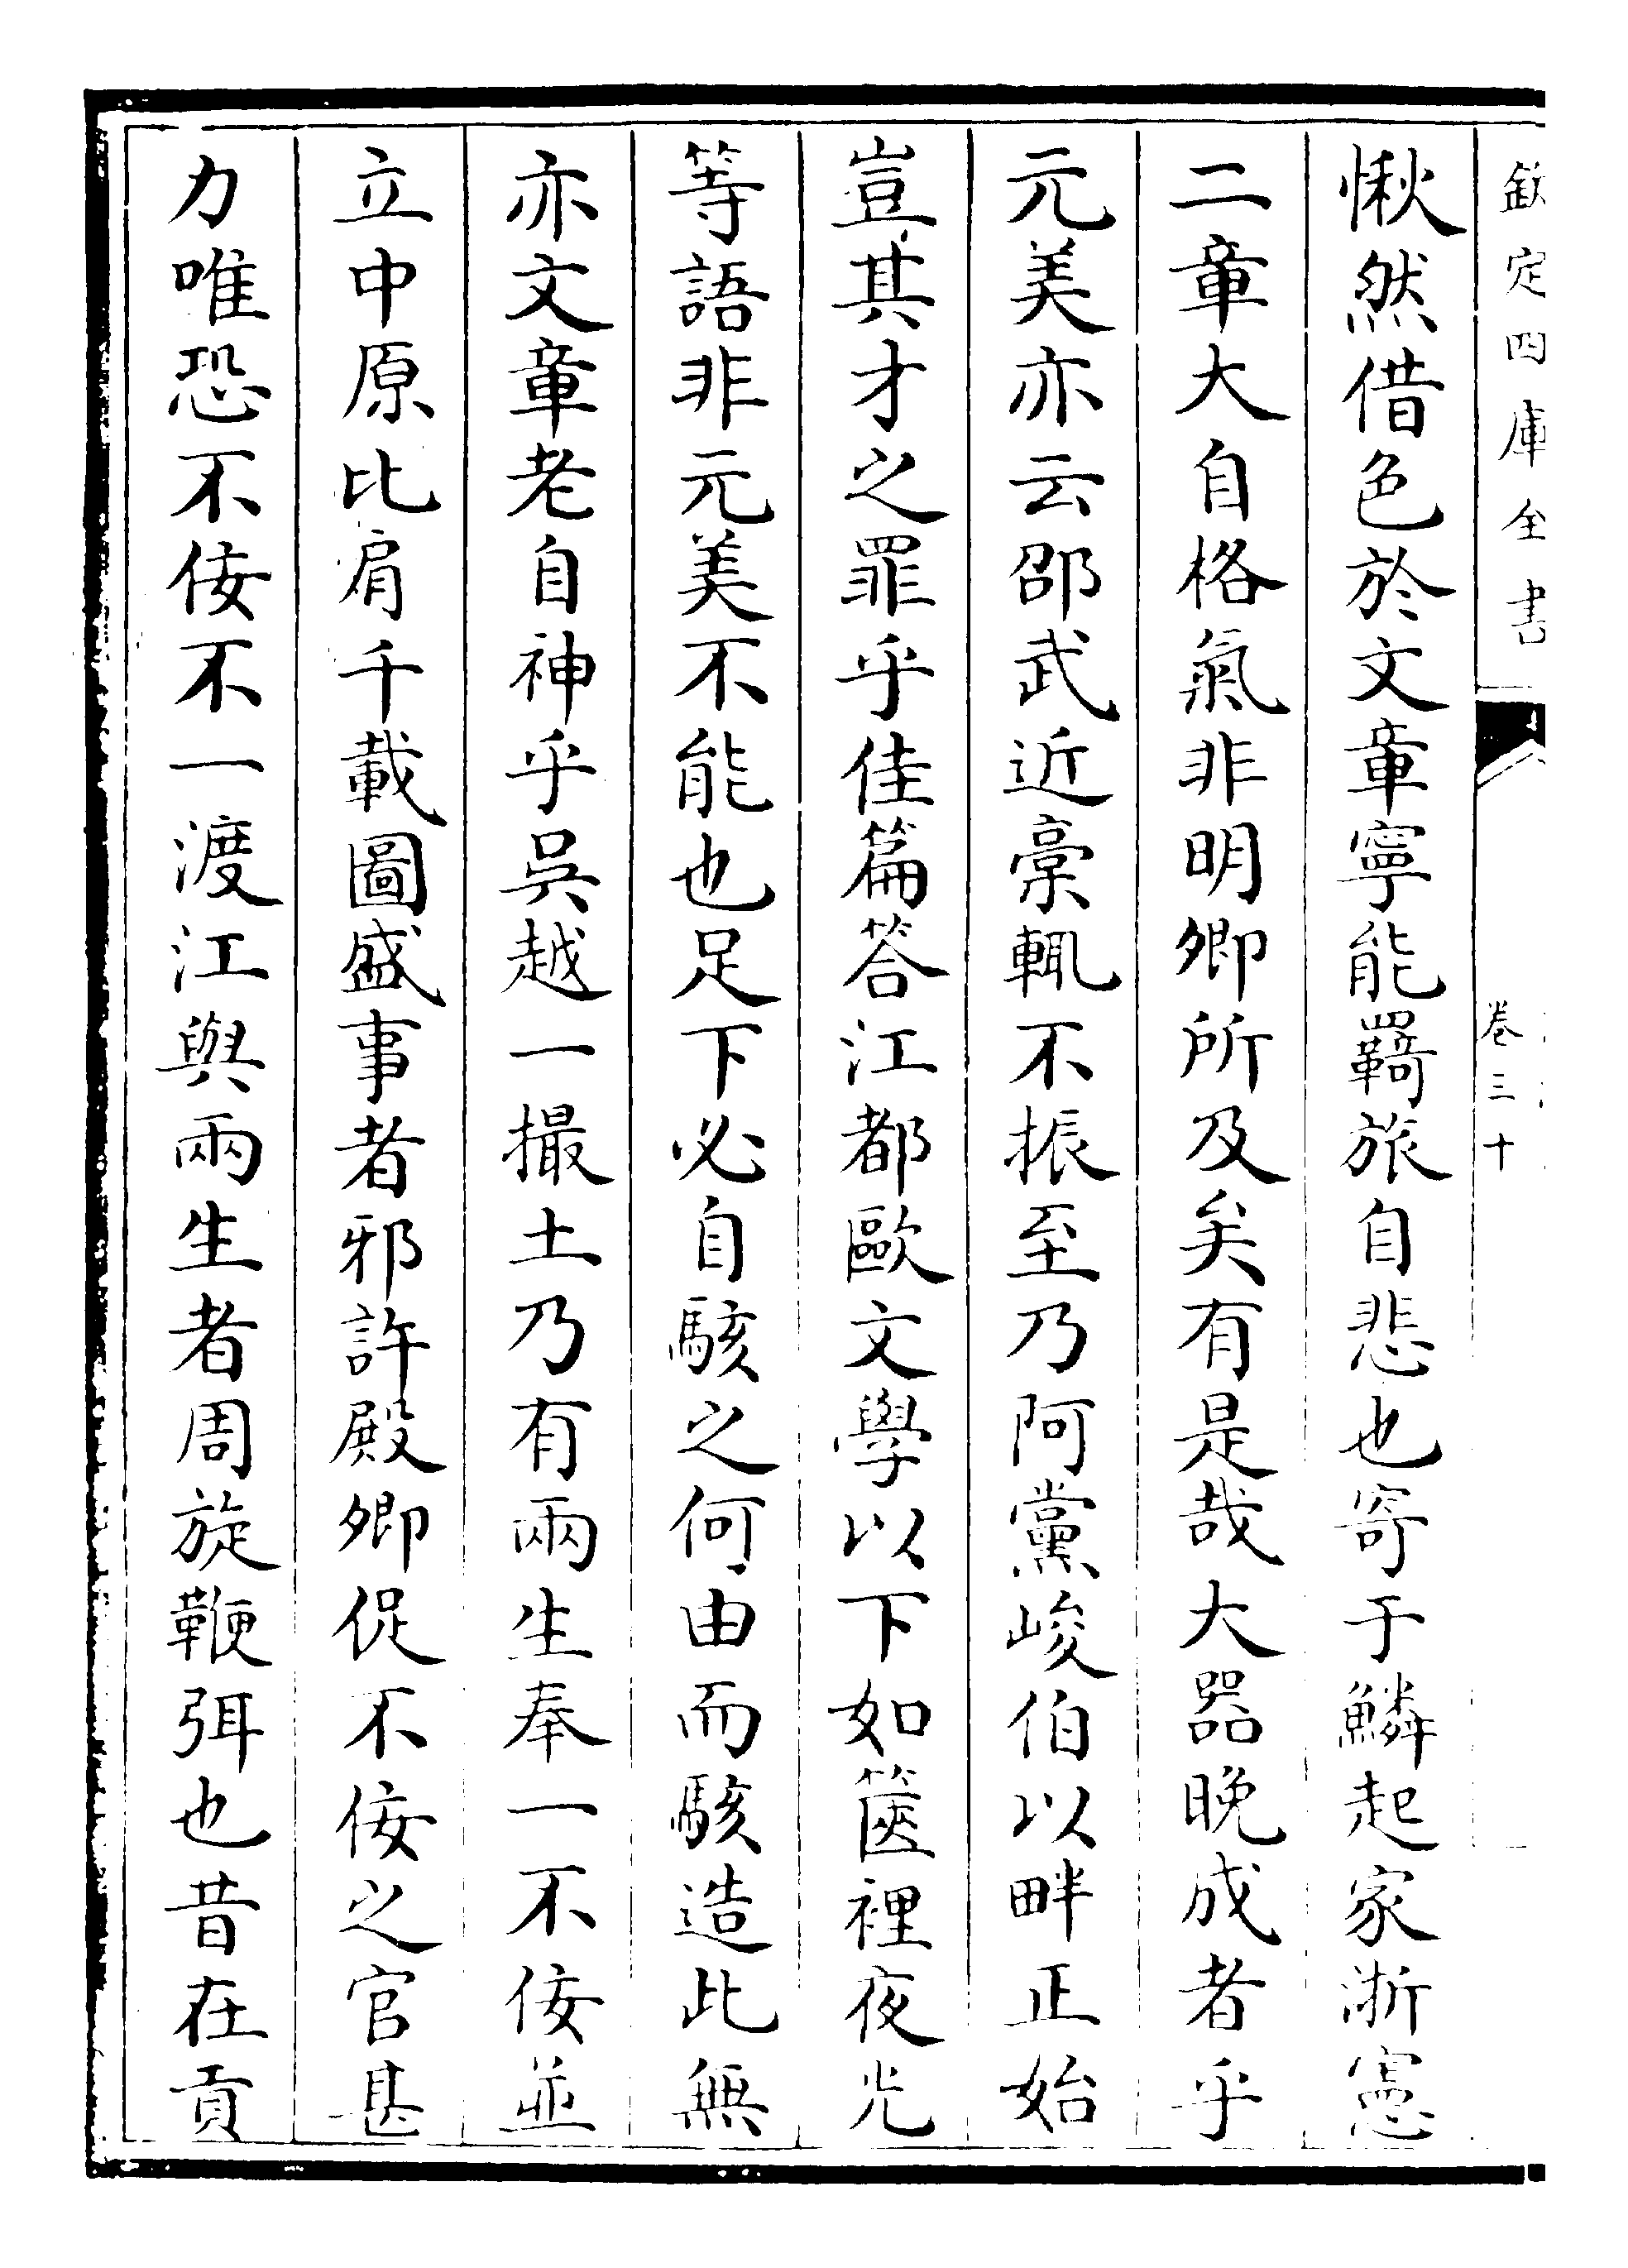 欽定四庫全書
卷三十
愀然借色於文章寧能羇旅自悲也寄于鱗起家浙憲
二章大自格氣非明卿所及矣有是哉大器晚成者乎
元美亦云邵武近稾輒不振至乃阿黨峻伯以畔正始
豈其才之罪乎佳篇答江都歐文學以下如篋裡夜光
等語非元美不能也足下必自駭之何由而駭造此無
亦文章老自神乎吳越一撮土乃有兩生奉一不佞並
立中原比肩千載圖盛事者邪許殿卿促不佞之官甚
力唯恐不佞不一渡江與兩生者周旋鞭弭也昔在貢